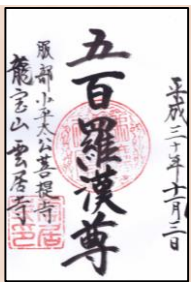 平成三十年十一月三日
五百羅漢尊
服部小平太公菩提寺
龍宝山雲居寺